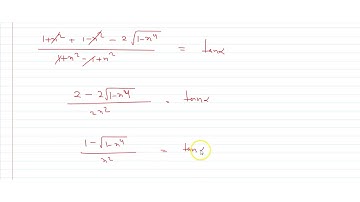 (1+x² + 1-x² - 2√(1-x⁴)) / (1+x² - 1+x²) = tanα
(2 - 2√(1-x⁴)) / 2x² = tanα
(1 - √(1-x⁴)) / x² = tanα